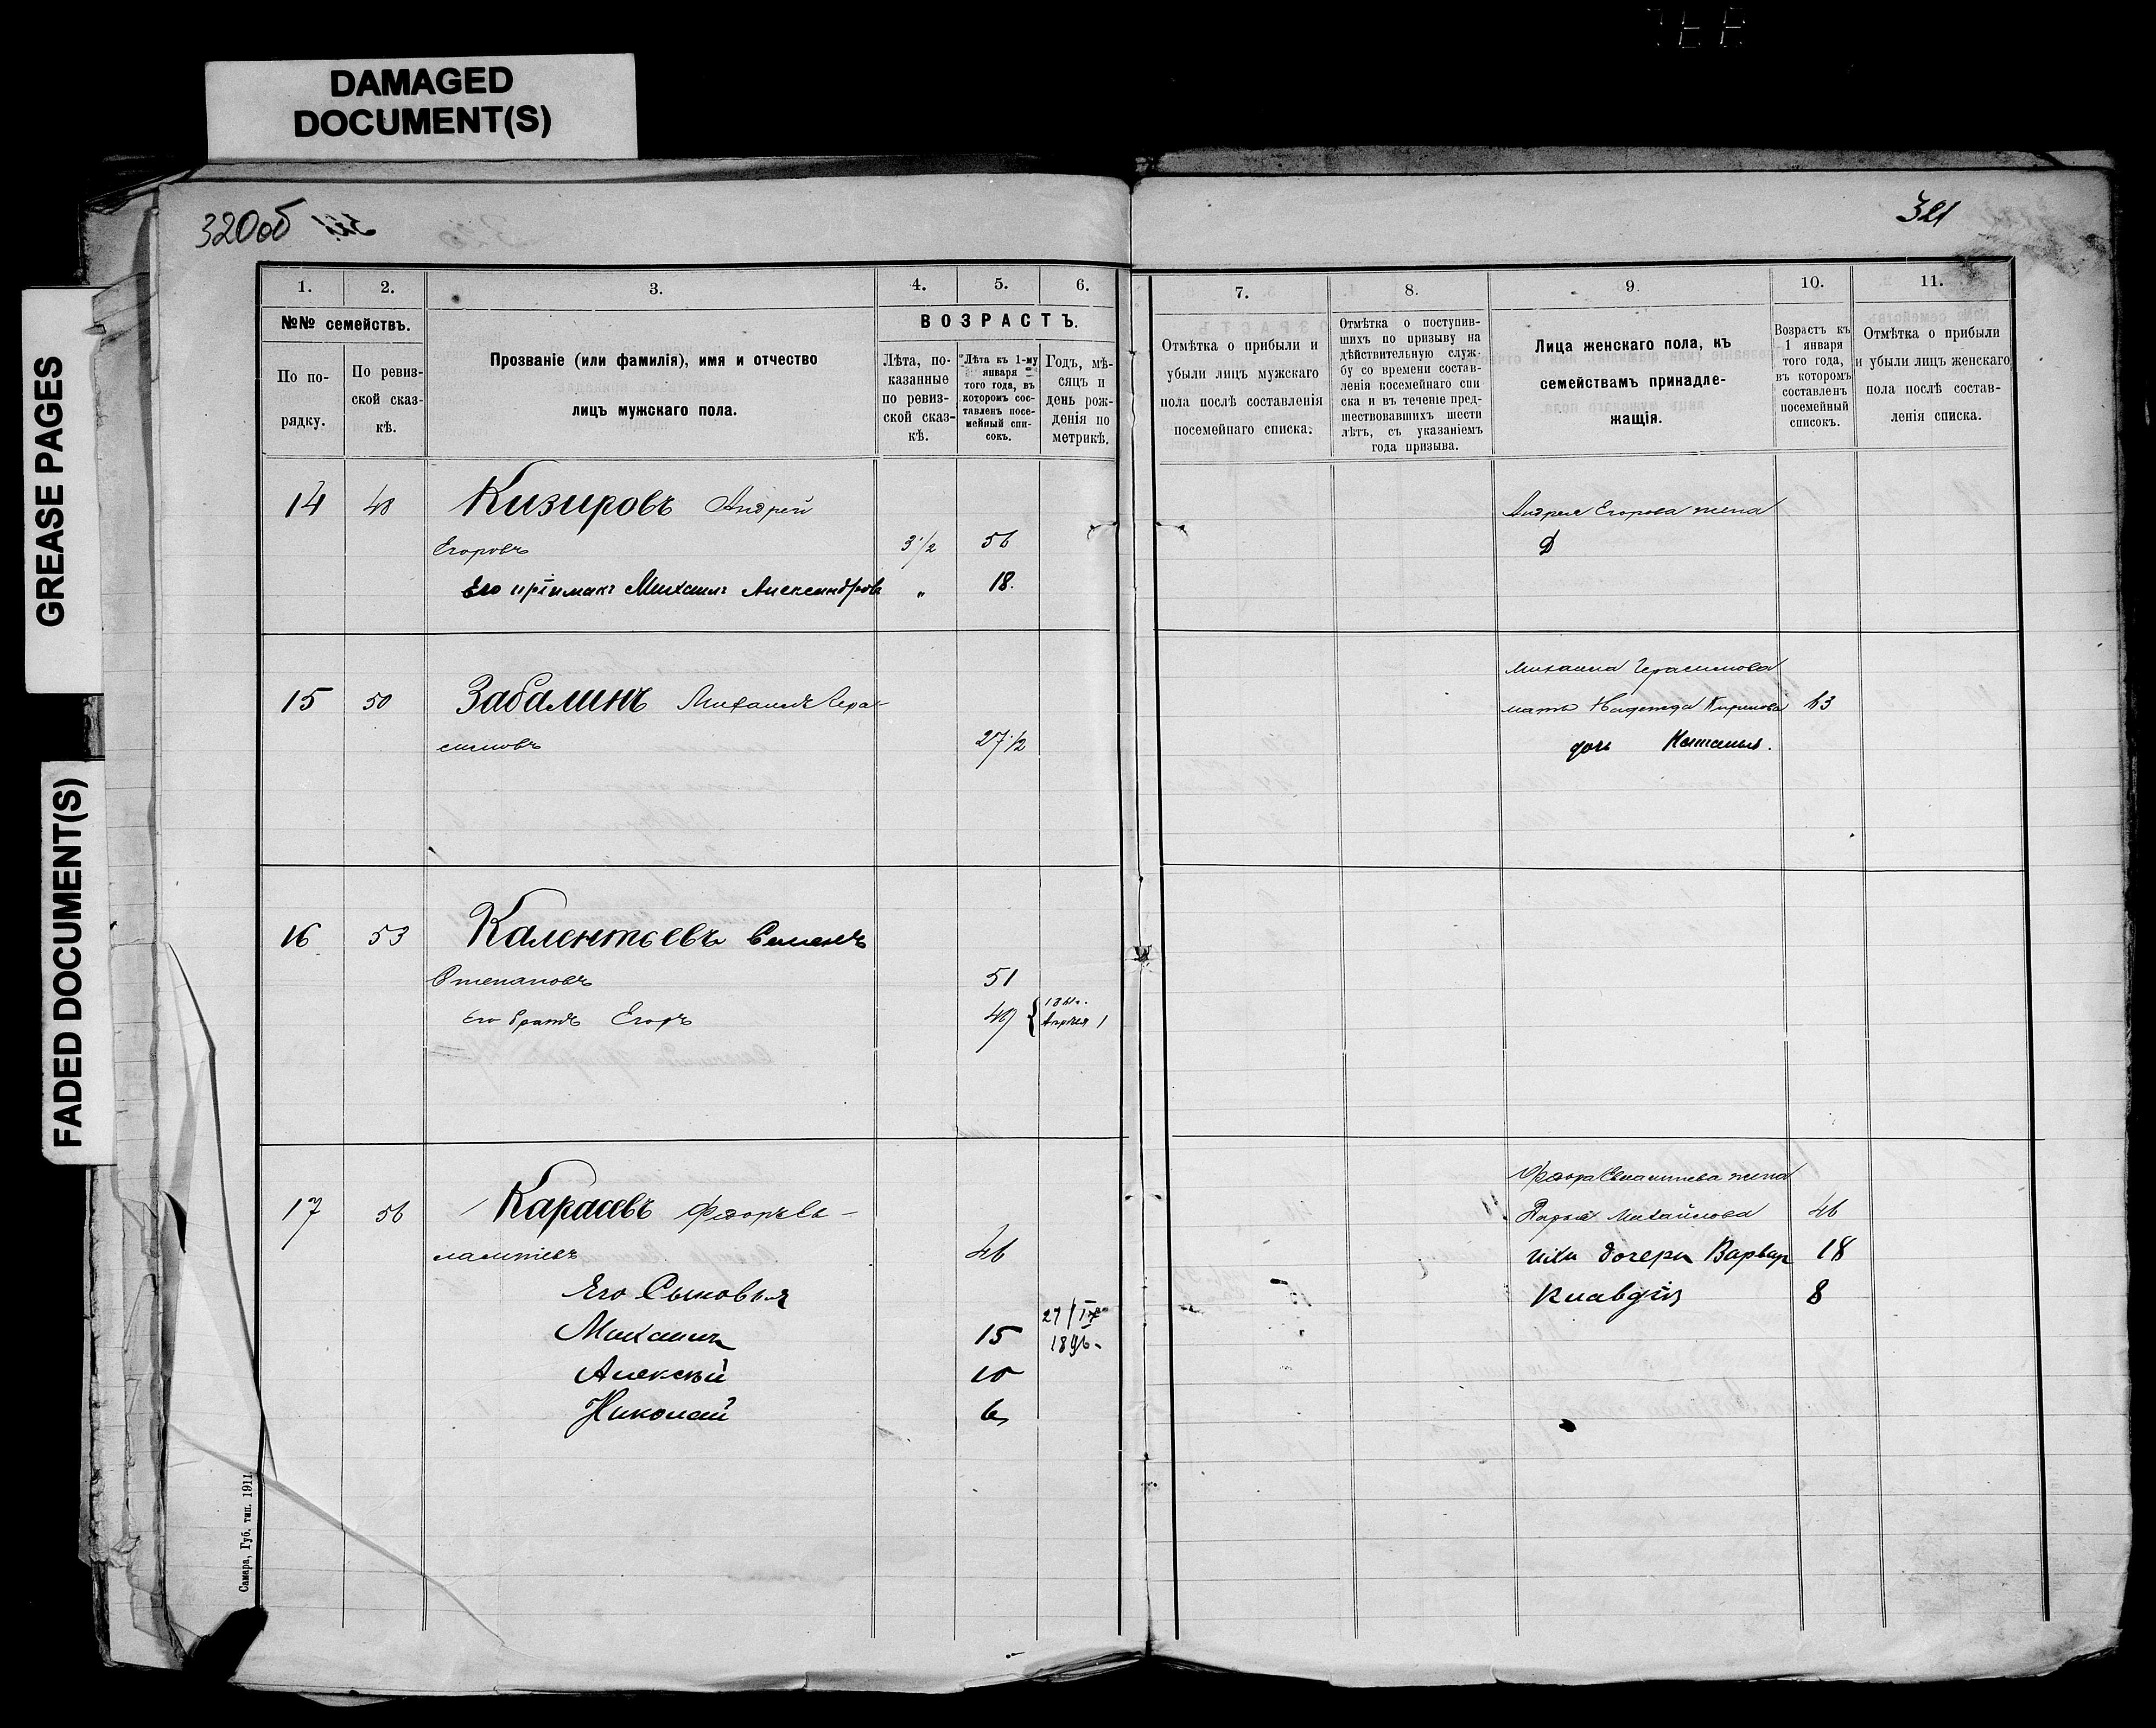 DAMAGED
DOCUMENT(S)
GREASE PAGES
FADED DOCUMENT(S)
320об
321
1.
2.
3.
4.
5.
6.
№№ семействъ.
ВОЗРАСТЪ.
По по-
рядку.
По ревиз-
ской сказ-
кѣ.
Прозваніе (или фамилія), имя и отчество
лицъ мужскаго пола.
Лѣта, по-
казанные
по ревиз-
ской сказ-
кѣ.
Лѣта къ 1-му
января
того года, въ
которомъ сос-
тавленъ посе-
мейный спи-
сокъ.
Годъ, мѣ-
сяцъ и
день рож-
денія по
метрикѣ.
7.
8.
9.
10.
11.
Отмѣтка о прибыли и
убыли лицъ мужскаго
пола послѣ составленія
посемейнаго списка.
Отмѣтка о поступив-
шихъ по призыву на
дѣйствительную служ-
бу со времени состав-
ленія посемейнаго спи
ска и въ теченіе пред-
шествовавшихъ шести
лѣтъ, съ указаніемъ
года призыва.
Лица женскаго пола, къ
семействамъ принадле-
жащія.
Возрастъ къ
1 января
того года,
въ которомъ
составленъ
посемейный
списокъ.
Отмѣтка о прибыли
и убыли лицъ женскаго
пола послѣ состав-
ленія списка.
14 48 Кизировъ Андрей
Егоровъ 3 1/2 56
Его пріимакъ Михаилъ Александровъ „ 18.
Андрея Егорова жена
Д
15 50 Забалинъ Михаилъ Гера-
симовъ 27 1/2
Михаила Герасимова
мать Надежда Кирилова 63
дочь Наталья.
16 53 Калентьевъ Семенъ
Степановъ 51
Его братъ Егоръ 49 1861г.
Апрѣля 1
17 56 Карасевъ Федоръ Ев-
лампіевъ 46
Его Сыновья
Михаилъ 15 27/IX
1896.
Алексѣй 10
Николай 6
Федора Евлампіева жена
Дарья Михайлова 46
ихъ дочери Варвар 18
Клавдія 8
Самара, Губ. тип. 1911